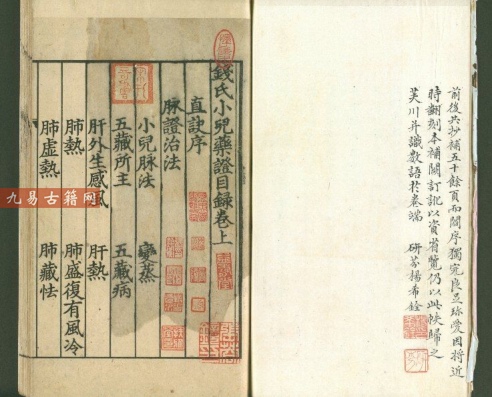 前後共抄補五十餘頁而閻序獨完良足珍愛因將近
時翻刻本補闕訂訛以資省覽仍以此帙歸之
芙川并識數語於卷端 研芬楊希銓
錢氏小兒藥證目録卷上
直訣序
脉證治法
小兒脉法 變蒸
五藏所主 五藏病
肝外生感風 肝熱
肺熱 肺盛復有風冷
肺虚熱 肺藏怯
九易古籍网